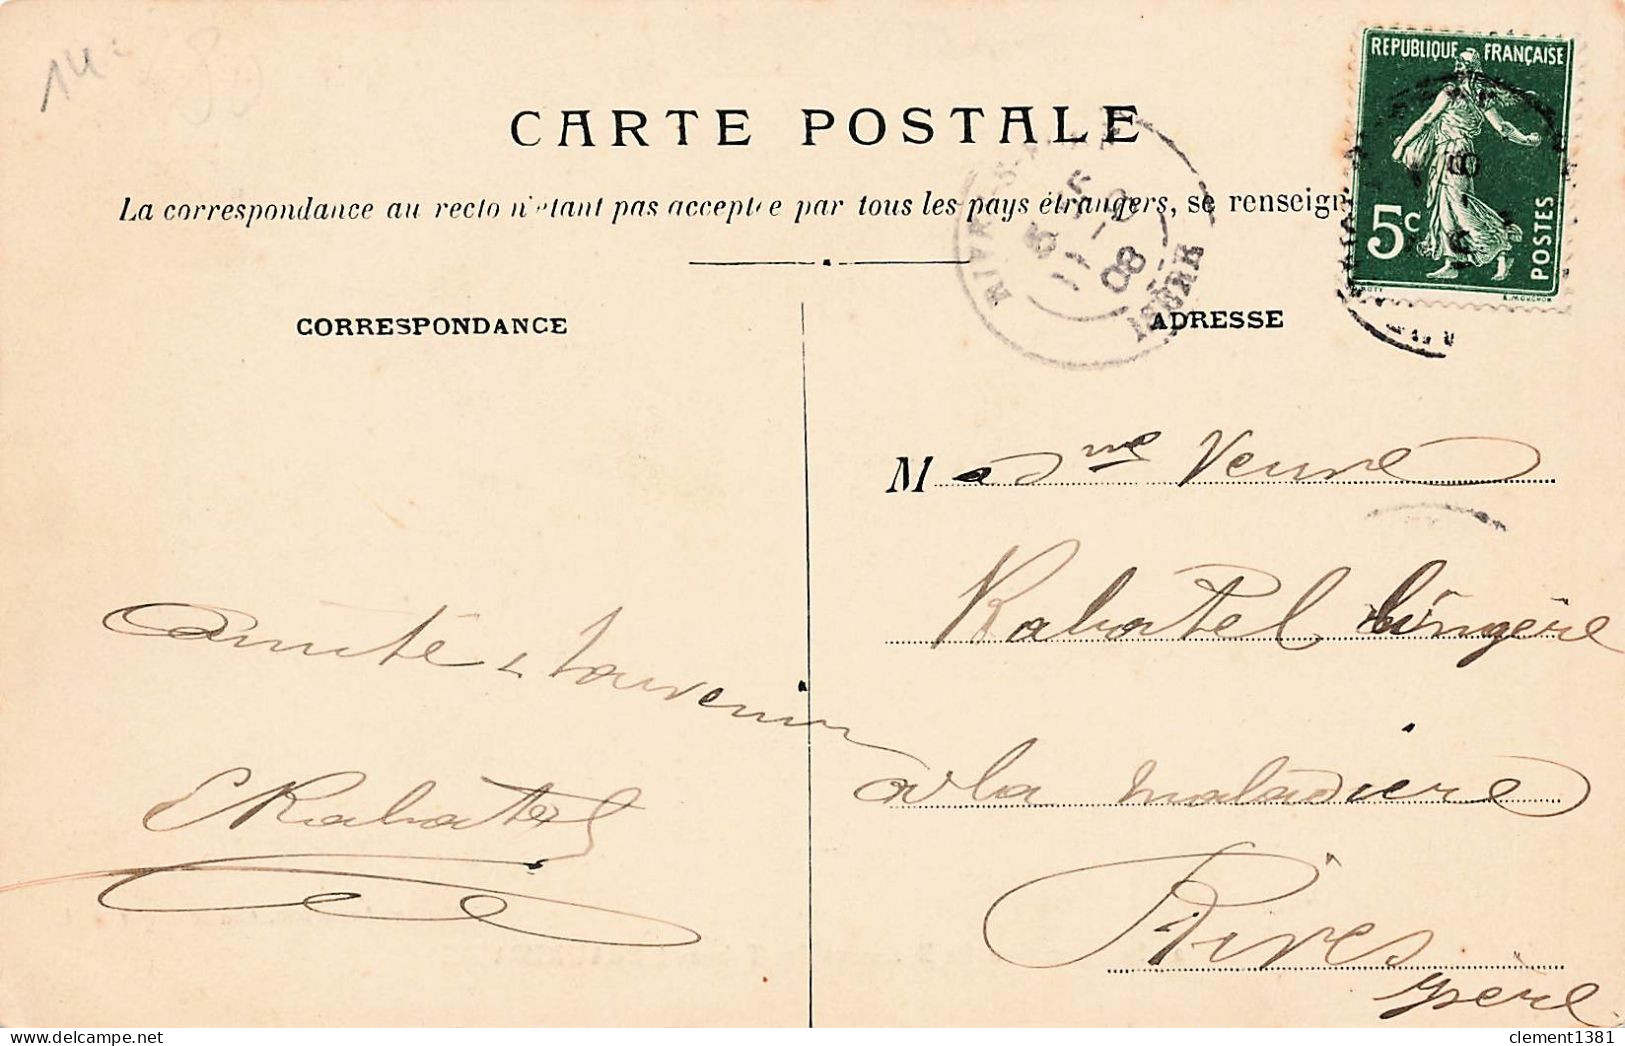 14
CARTE POSTALE
La correspondance au recto n'étant pas acceptée par tous les pays étrangers, se renseign
CORRESPONDANCE
ADRESSE
REPUBLIQUE FRANÇAISE
5c
POSTES
RIVES
5
11 - 9
08
ISERE
Madme Veuve
Rabatel lingère
a la maladiere
Rives
Isère
Amitié & souvenir
E Rabatel
clement1381